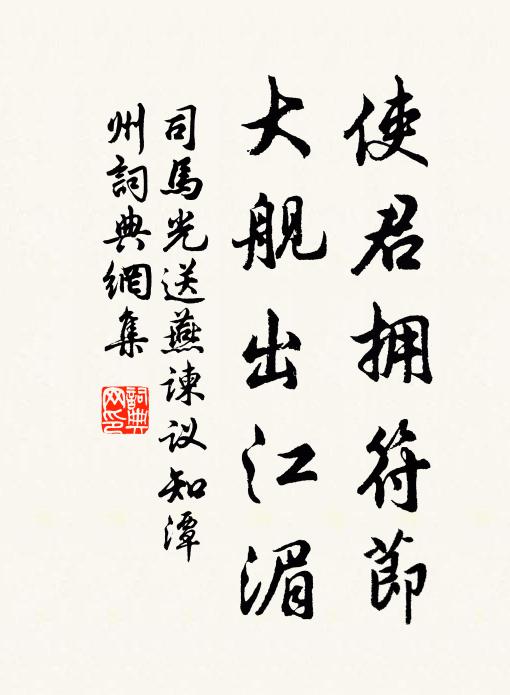 使君拥符節
大舰出江湄
司馬光送燕谏议知潭
州詞典網集
詞典
网印